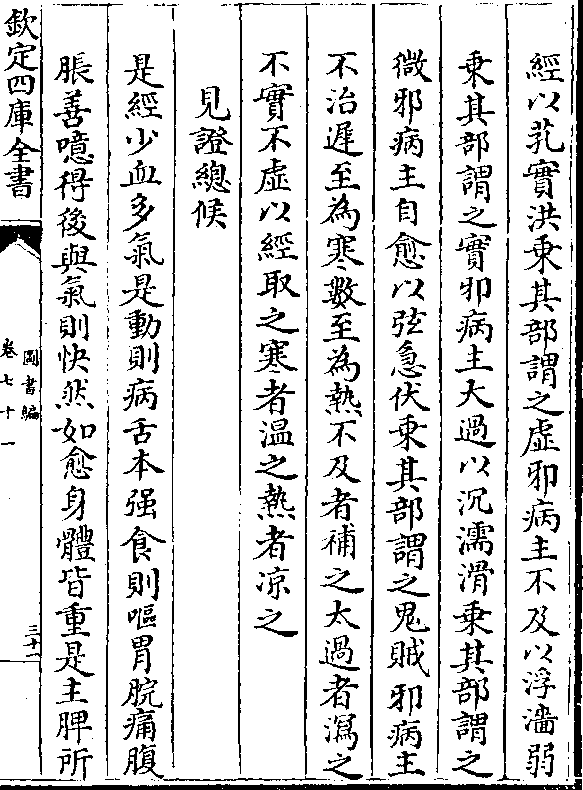 經以芤實洪乗其部謂之虛邪病主不及以浮濇弱
乗其部謂之實邪病主大過以沉濡滑乗其部謂之
微邪病主自愈以弦急伏乗其部謂之鬼賊邪病主
不治遲至為寒數至為熱不及者補之太過者瀉之
不實不虛以經取之寒者温之熱者凉之
見證總候
是經少血多氣是動則病舌本强食則嘔胃脘痛腹
脹善噫得後與氣則快然如愈身體皆重是主脾所
欽定四庫全書
圖書編
卷七十一
三十一